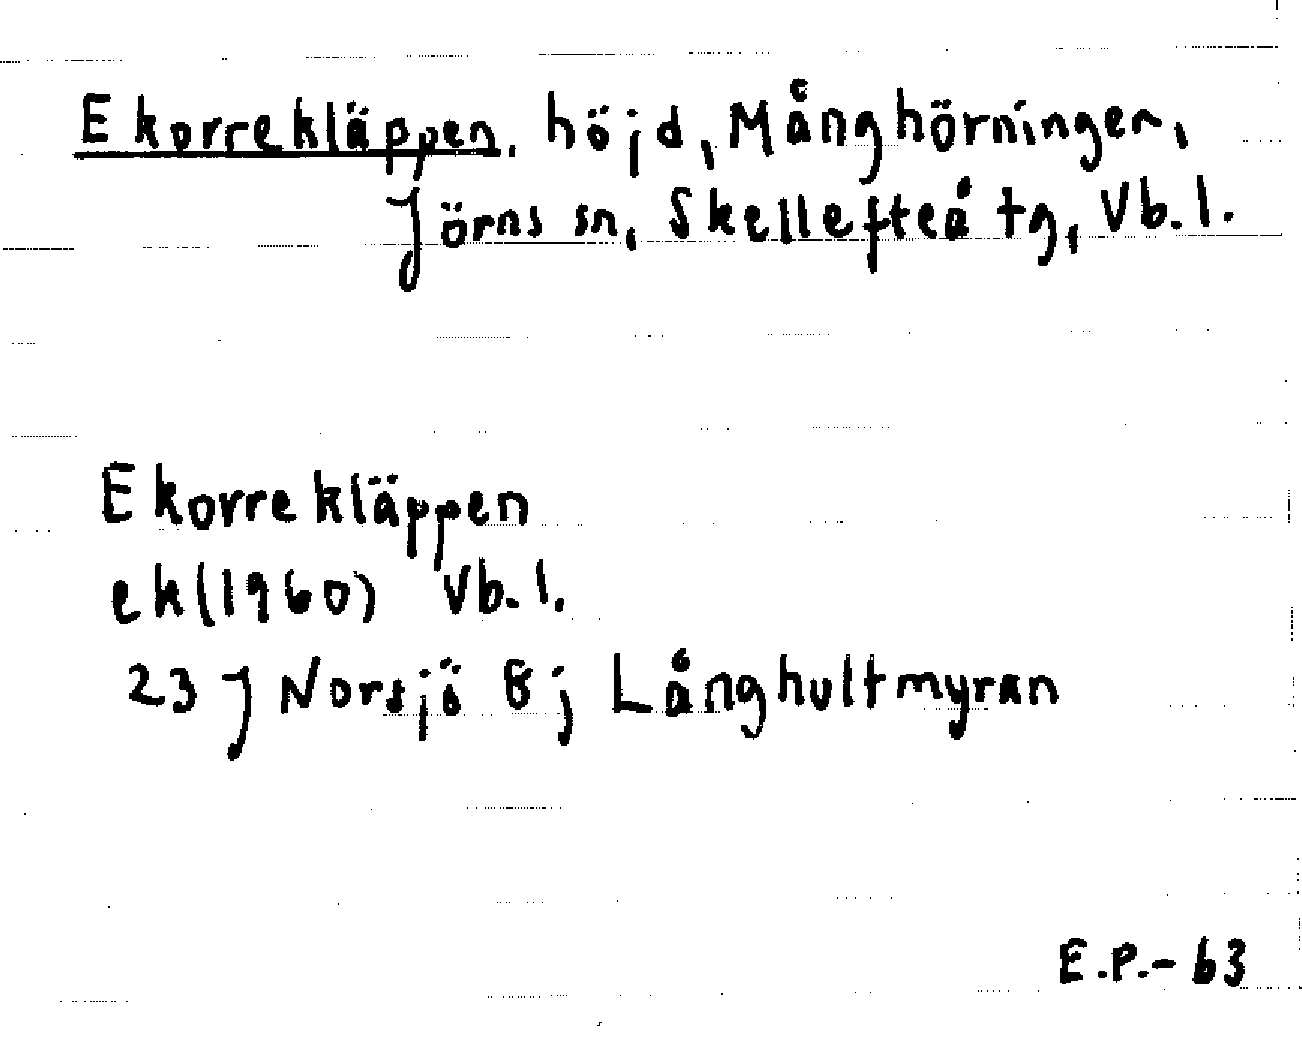 Ekorrekläppen, höjd, Månghörningen,
Jörns sn, Skellefteå tg, Vb. l.
Ekorrekläppen
ek (1960) Vb. l.
23 J Norsjö 8 j Långhultmyran
E.P.-63